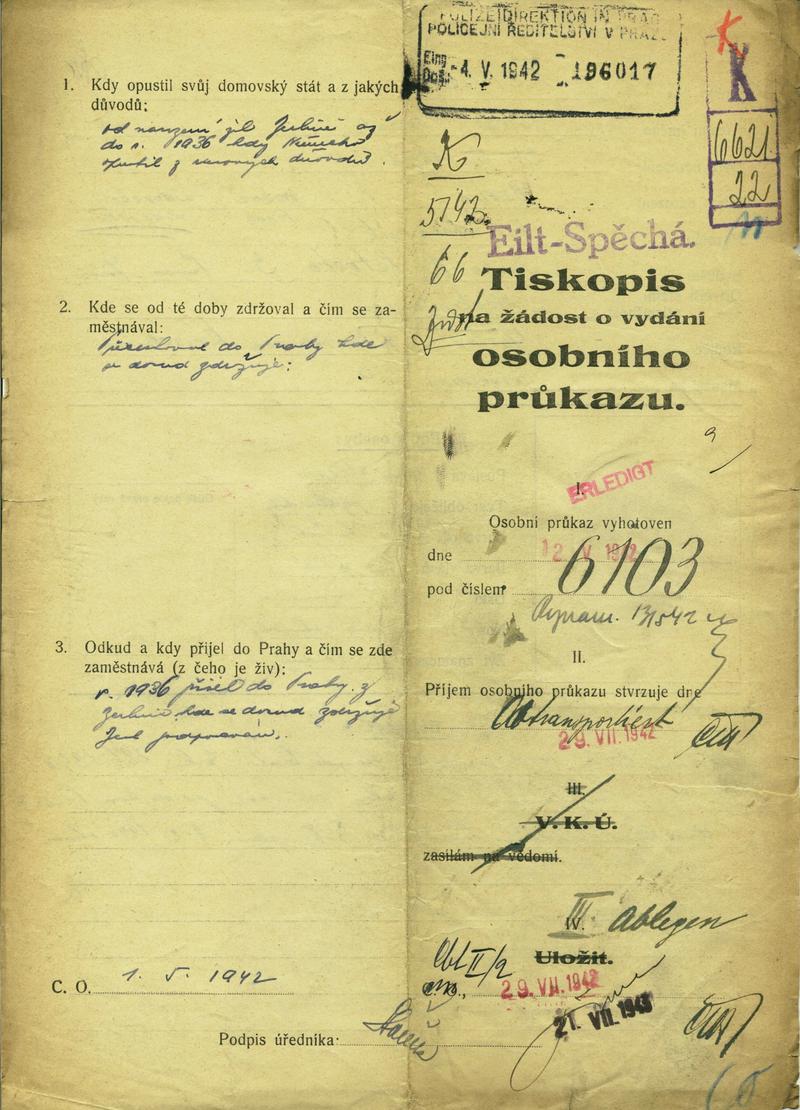 1. Kdy opustil svůj domovský stát a z jakých
důvodů:
do r. 1936 kdy
z důvodů.
2. Kde se od té doby zdržoval a čím se za-
městnával:
do Prahy kde
se dosud zdržuje.
3. Odkud a kdy přijel do Prahy a čím se zde
zaměstnává (z čeho je živ):
r. 1936 přišel do Prahy z
kde se dosud zdržuje
C. O. 1. 5. 1942
Podpis úředníka:
POLIZEIDIREKTION IN PRAG
POLICEJNÍ ŘEDITELSTVÍ V PRAZE
Eing.
Došlo -4. V. 1942 196017
K
6621
22
K
5742
66
Eilt-Spěchá.
Tiskopis
na žádost o vydání
osobního
průkazu.
I.
ERLEDIGT
Osobní průkaz vyhotoven
dne 12 V 1942
pod číslem 6103
II.
Příjem osobního průkazu stvrzuje dne
Abtransportiert
29. VII. 1942
III.
V. K. Ú.
zasílám na vědomí.
IV. III. Ablegen
Uložit.
29. VII. 1942
21. VII. 1943